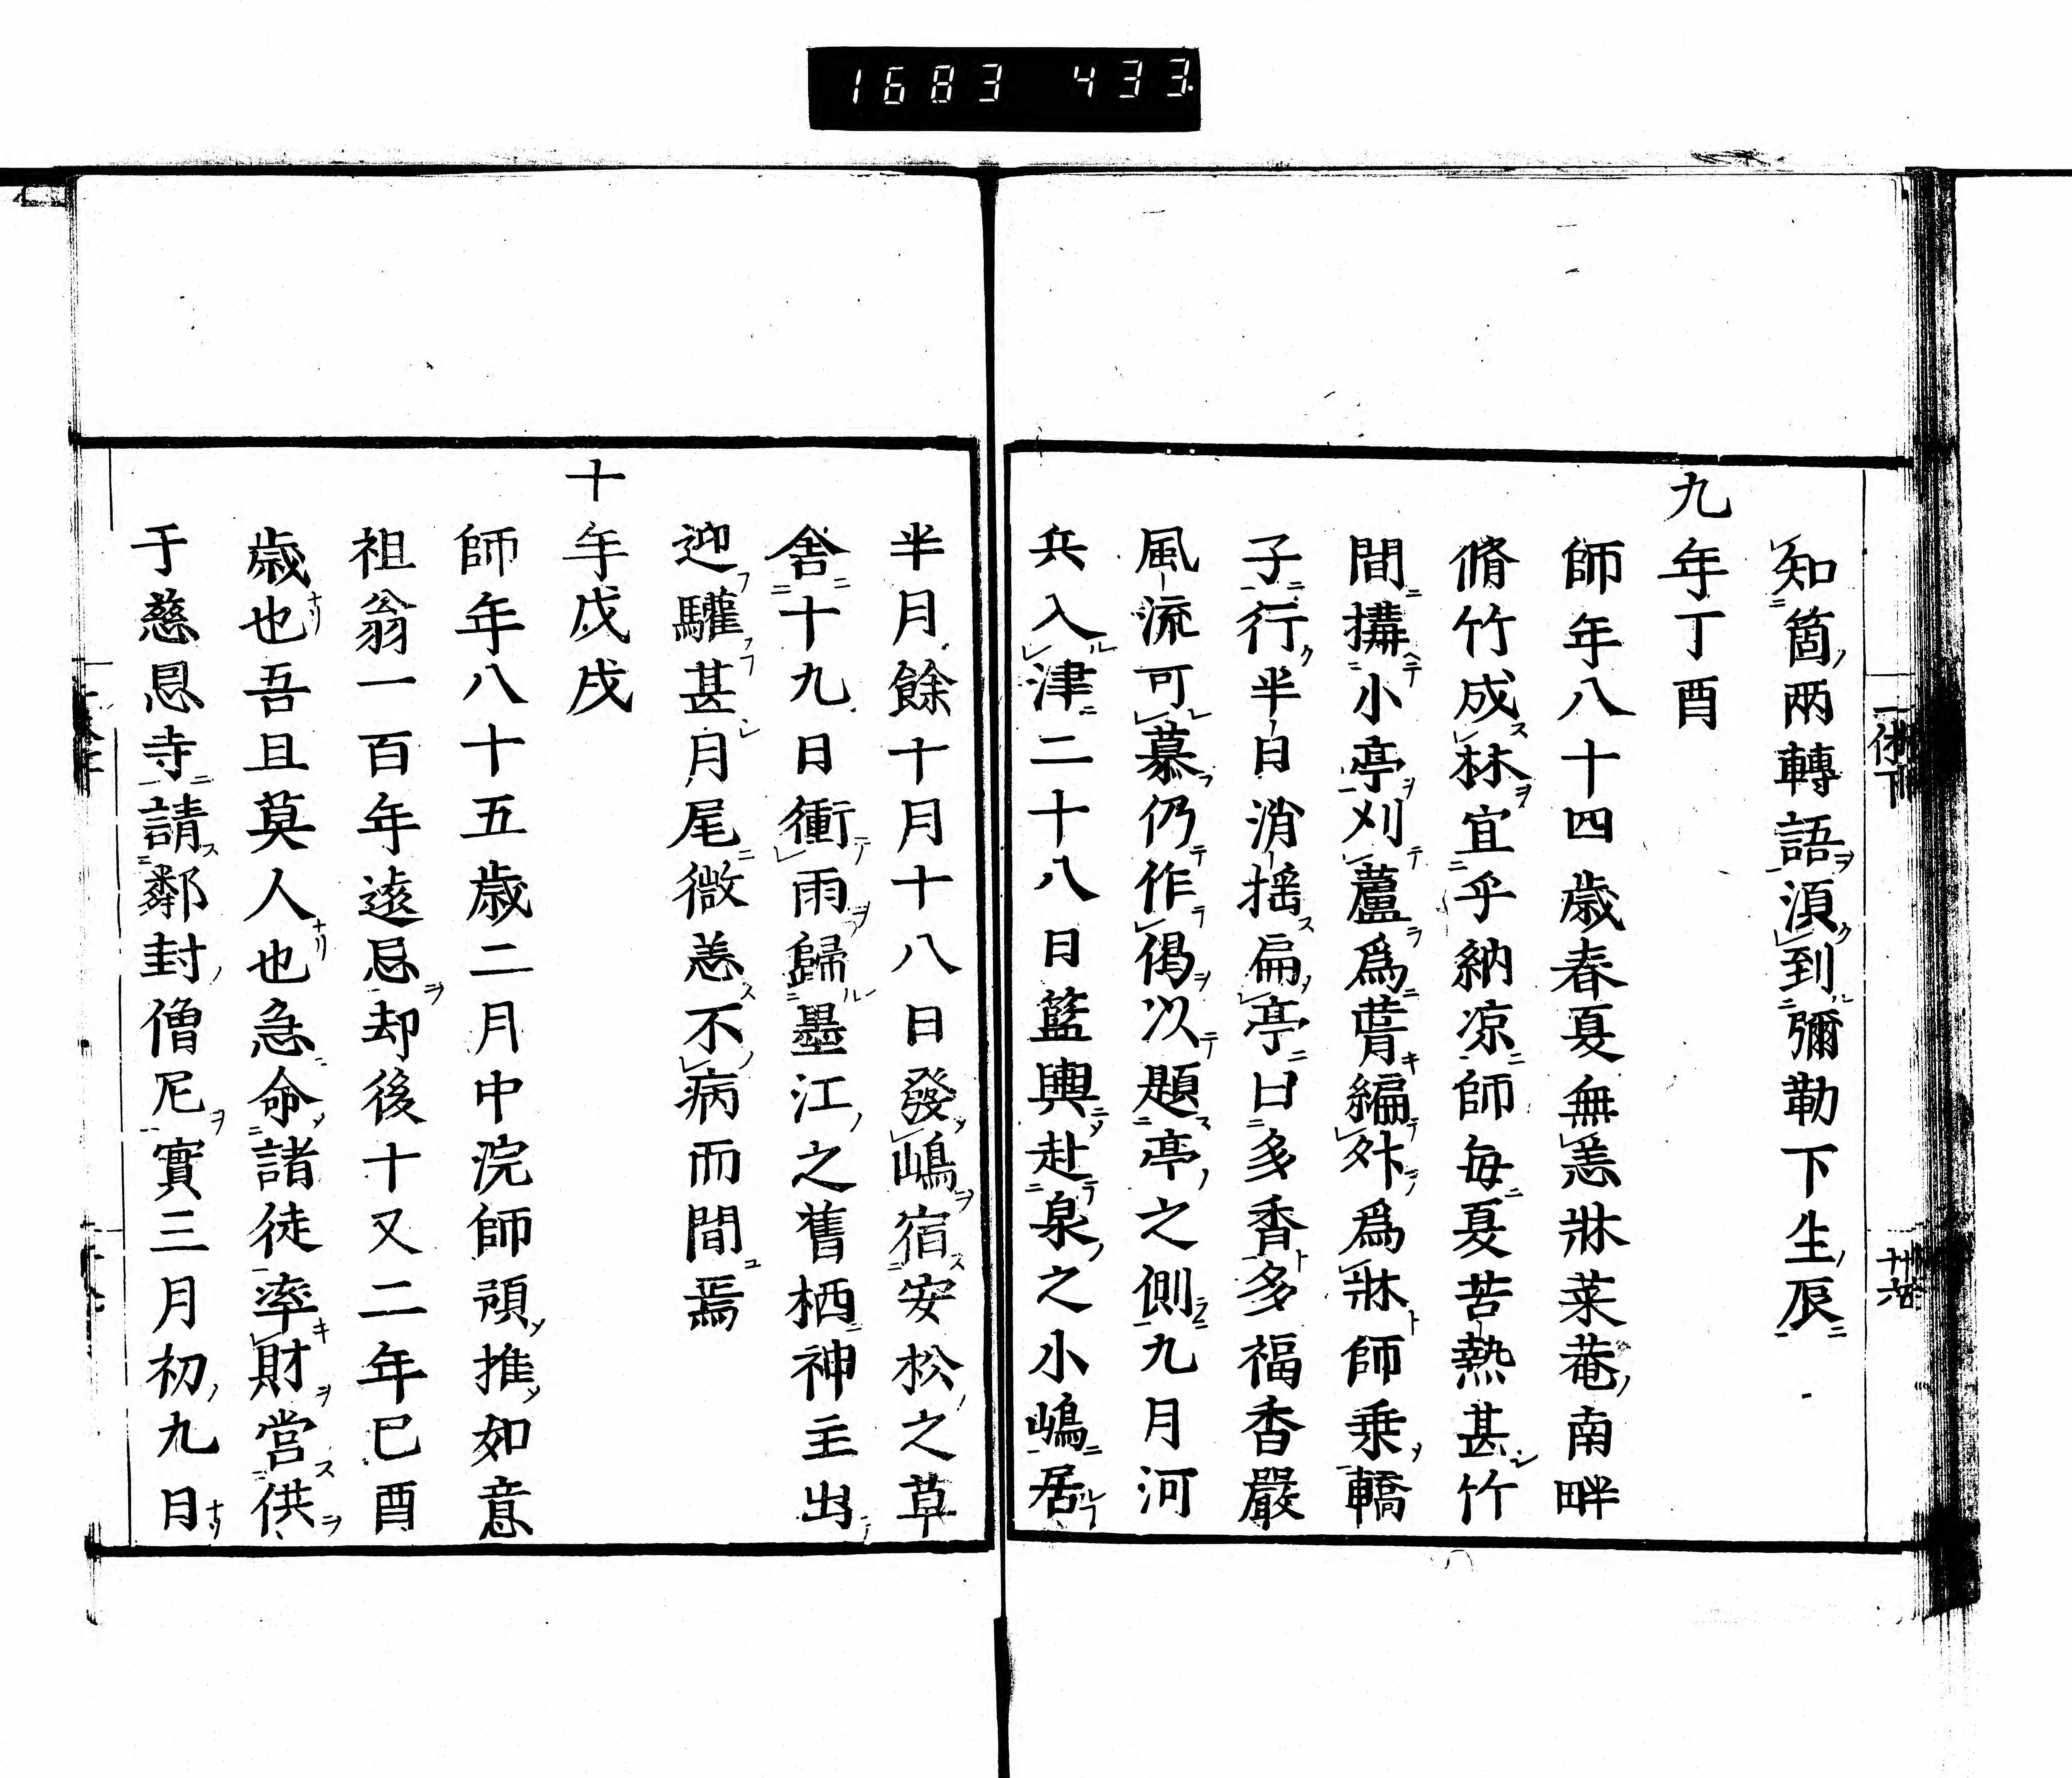 1683 433
知箇兩轉語湏到彌勒下生辰
九年丁酉
師年八十四歳春夏無恙牀菜菴南畔
脩竹成林宜乎納凉師毎夏苦熱甚竹
間搆小亭刈蘆爲葺編竹爲牀師乗轎
子行半日消揺扁亭曰多香多福香嚴
風流可慕仍作偈以題亭之側九月河
兵入津二十八日籃輿赴泉之小嶋居
半月餘十月十八日發嶋宿安松之草
舎十九日衝雨歸墨江之舊栖神主出
迎驩甚月尾微恙不病而間焉
十年戊戌
師年八十五歳二月中浣師預推如意
祖翁一百年遠忌却後十又二年已酉
歳也吾且莫人也急命諸徒率財営供
于慈恩寺請鄰封僧尼實三月初九日